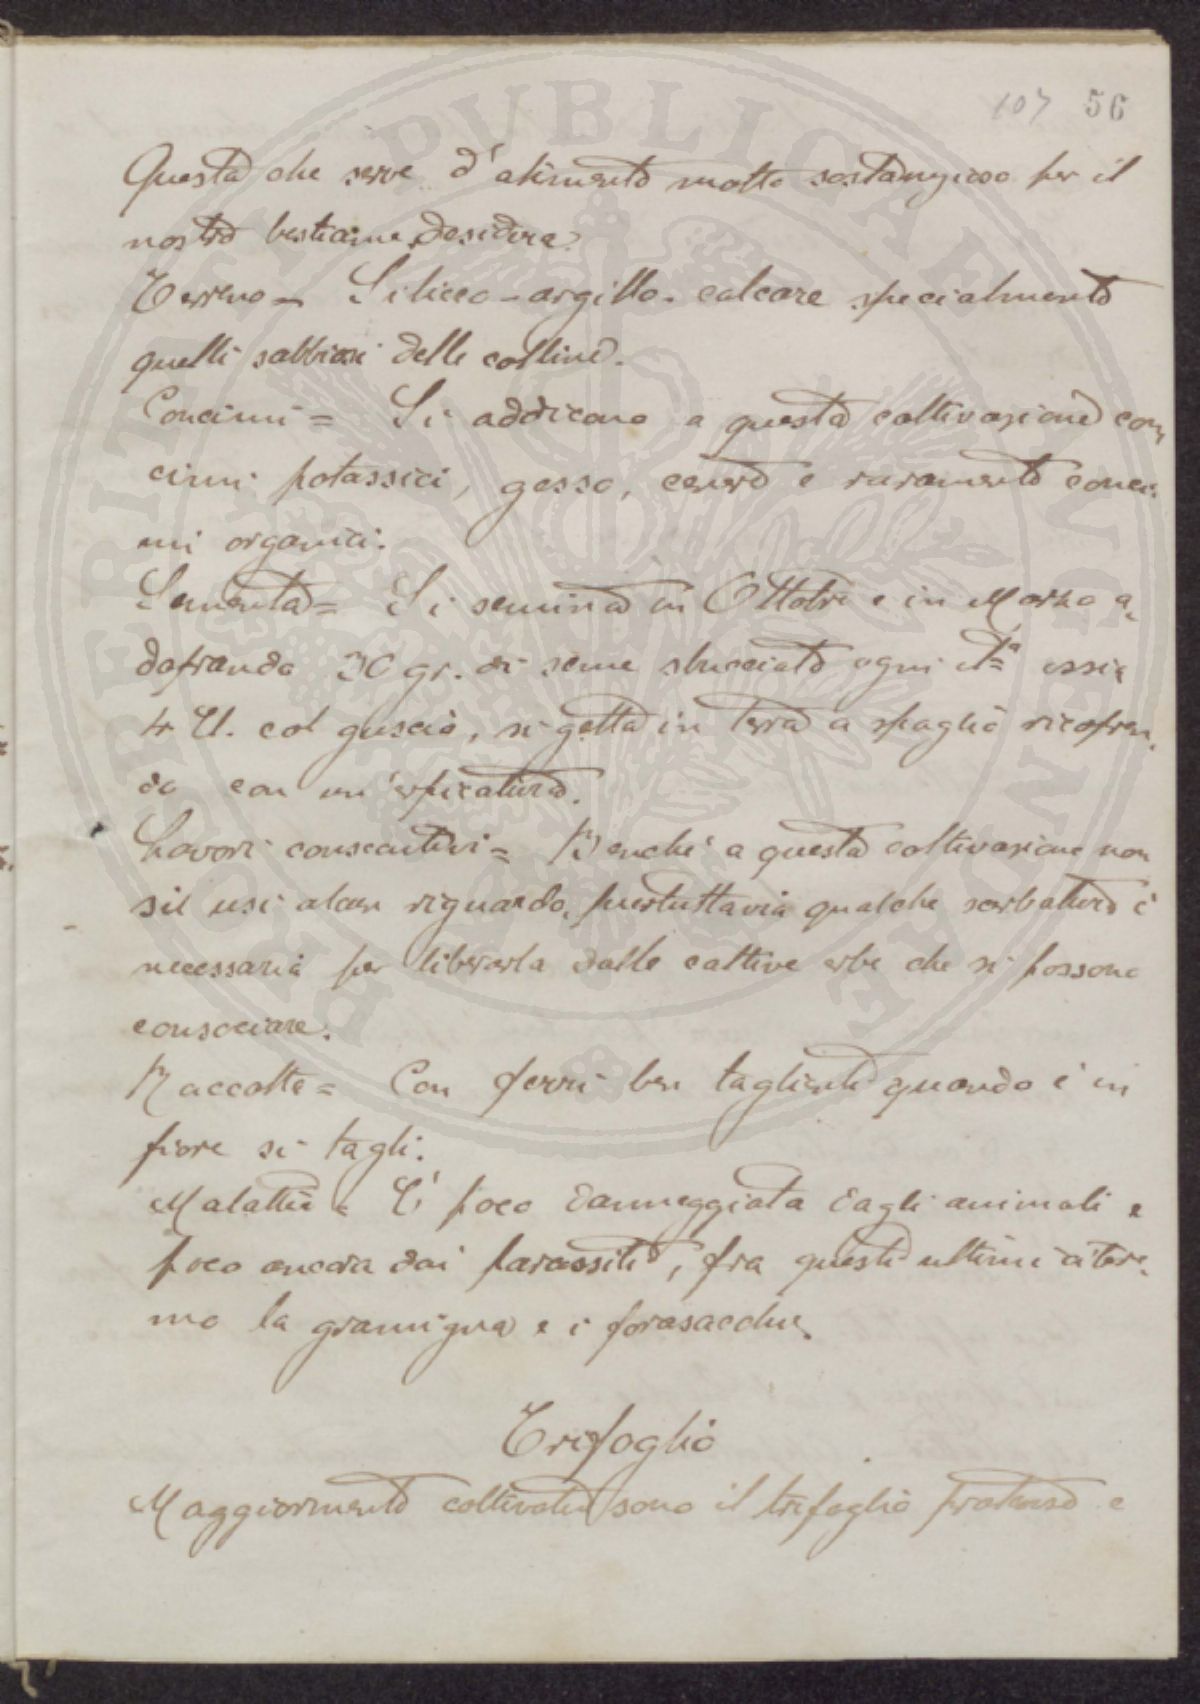 107 56
Questa che serve d'alimento molto sostanzioso per il
nostro bestiame, desidera:
Terreno = Siliceo-argillo-calcare specialmente
quelli sabbiosi delle colline.
Concimi = Si addicono a questa coltivazione con-
cimi potassici, gesso, cenere e raramente conci-
mi organici.
Sementa = Si semina in Ottobre e in Marzo a-
doprando 30 gr. di seme sbucciato ogni ossia
4 Ul. col guscio, si getta in terra a spaglio ricopren-
do con un'erpicatura.
Lavori consecutivi = Benchè a questa coltivazione non
si usi alcun riguardo, pur tuttavia qualche sarchiatura è
necessaria per liberarla dalle cattive erbe che si possono
consociare.
Raccolte = Con ferri ben taglienti quando è in
fiore si tagli.
Malattie = E' poco danneggiata dagli animali e
poco ancora dai parassiti, fra questi ultimi citere-
mo la gramigna e i forasacchi.
Trifoglio
Maggiormente coltivati sono il trifoglio pratense e
PROSPERITATI PUBLICAE AUGENDAE